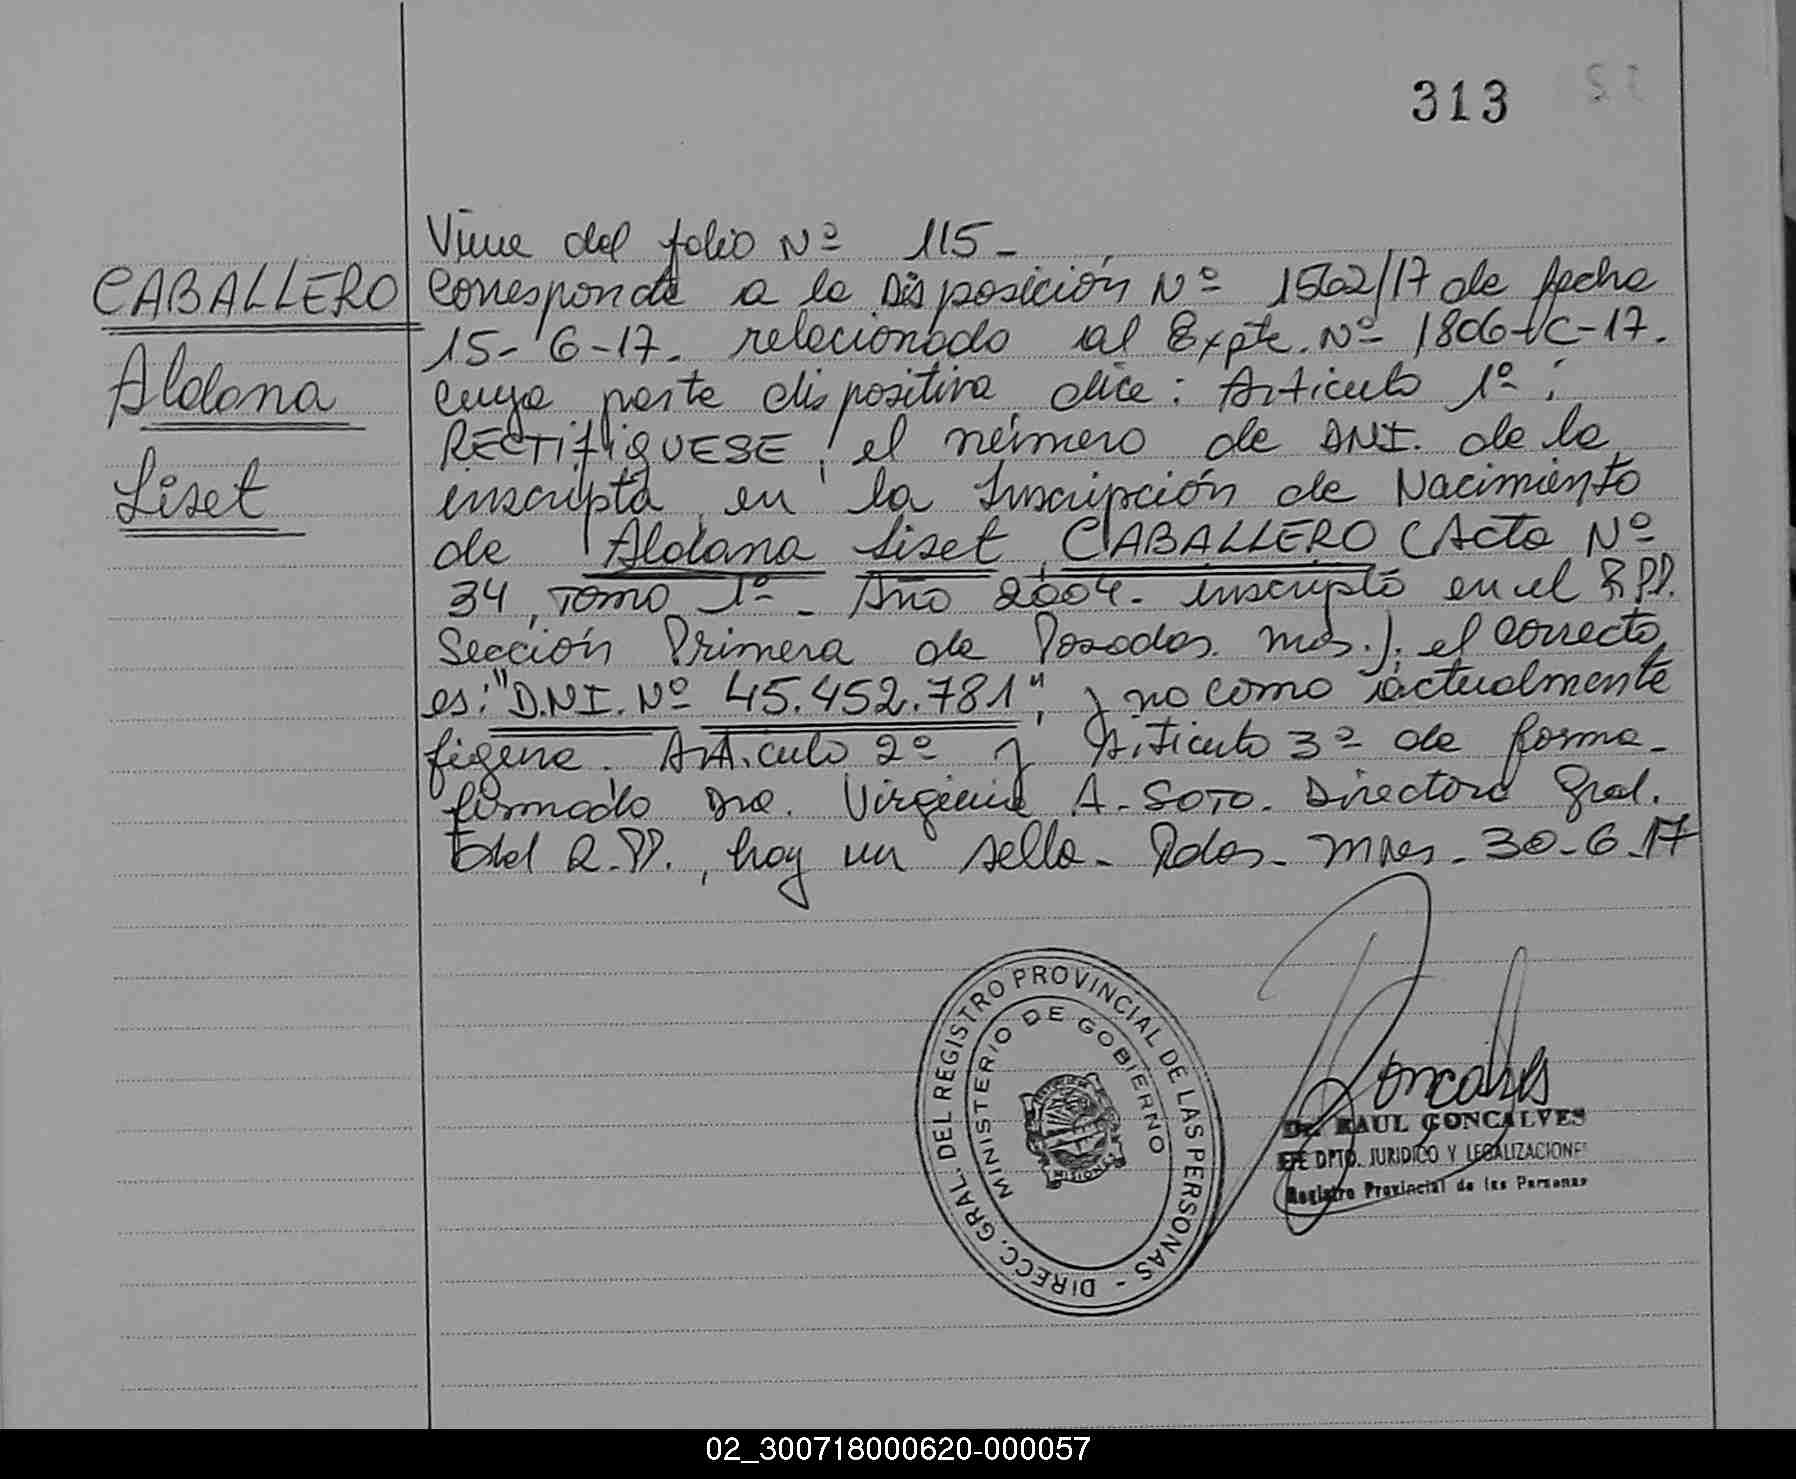 313
Viene del folio Nº 115-
CABALLERO
Aldana
Liset
Corresponde a la Disposición Nº 1562/17 de fecha
15-6-17. relacionado al Expte. Nº 1806-C-17.
cuya parte dispositiva dice: Artículo 1º:
RECTIFIQUESE, el número de DNI. de la
inscripta en la Inscripción de Nacimiento
de Aldana Liset CABALLERO (Acta Nº
34, Tomo 1º- Año 2004- inscripto en el R.P.P.
Sección Primera de Posadas. Mns.). el correcto
es: "D.N.I. Nº 45.452.781", y no como actualmente
figura. Artículo 2º y Artículo 3º de forma-
firmado Dra. Virginia A. SOTO. Directora Gral.
del R.PP., hay un sello- Pdas- Mnes- 30-6-17
DIRECC. GRAL. DEL REGISTRO PROVINCIAL DE LAS PERSONAS -
MINISTERIO DE GOBIERNO
MISIONES
Goncalves
Dr. RAUL GONCALVES
JEFE DPTO. JURIDICO Y LEGALIZACIONES
Registro Provincial de las Personas
02_300718000620-000057